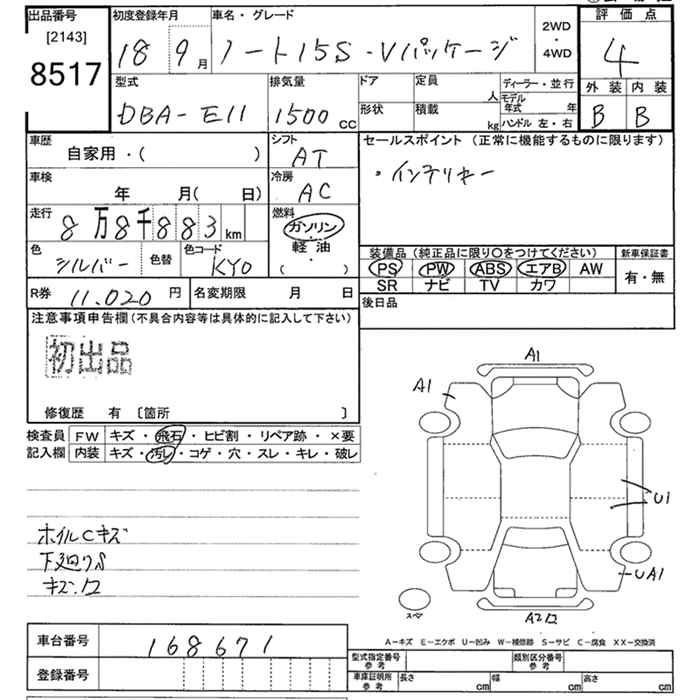 出品番号 初度登録年月 車名・グレード 評価点
[2143] 18 9月 ノート15S・Vパッケージ 2WD・4WD 4
8517 外装 内装
型式 排気量 ドア 定員 人 ディーラー・並行 B B
DBA-E11 1500cc 形状 積載 kg モデル年式 年 ハンドル 左・右
車歴 シフト セールスポイント(正常に機能するものに限ります)
自家用・( ) AT
車検 冷房 ・インテリキー
年 月( 日) AC
走行 8万8千883km 燃料 ガソリン・軽油・( )
色 シルバー 色替 色コード KY0
装備品(純正品に限り○をつけてください) 新車保証書
PS PW ABS エアB AW 有・無
SR ナビ TV カワ
R券 11,020円 名変期限 月 日 後日品
注意事項申告欄(不具合内容等は具体的に記入して下さい)
初出品
修復歴 有 〔箇所 〕
検査員 FW キズ・飛石・ヒビ割・リペア跡・×要
記入欄 内装 キズ・汚レ・コゲ・穴・スレ・キレ・破レ
A1
A1
U1
UA1
ホイルCキズ
下廻りS
キズ
スペア
A-キズ E-エクボ U-凹み W-補修跡 S-サビ C-腐食 XX-交換済
車台番号 168671
登録番号
型式指定番号 参考 類別区分番号 参考
車庫証明所 参考 長さ cm 幅 cm 高さ cm